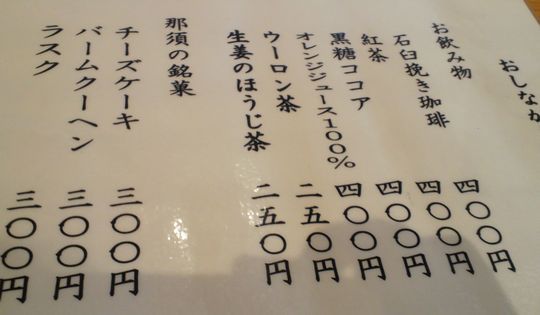 おしなが
お飲み物
石臼挽き珈琲 四〇〇円
紅茶 四〇〇円
黒糖ココア 四〇〇円
オレンジジュース100% 四〇〇円
ウーロン茶 二五〇円
生姜のほうじ茶 二五〇円
那須の銘菓
チーズケーキ 三〇〇円
バームクーヘン 三〇〇円
ラスク 三〇〇円